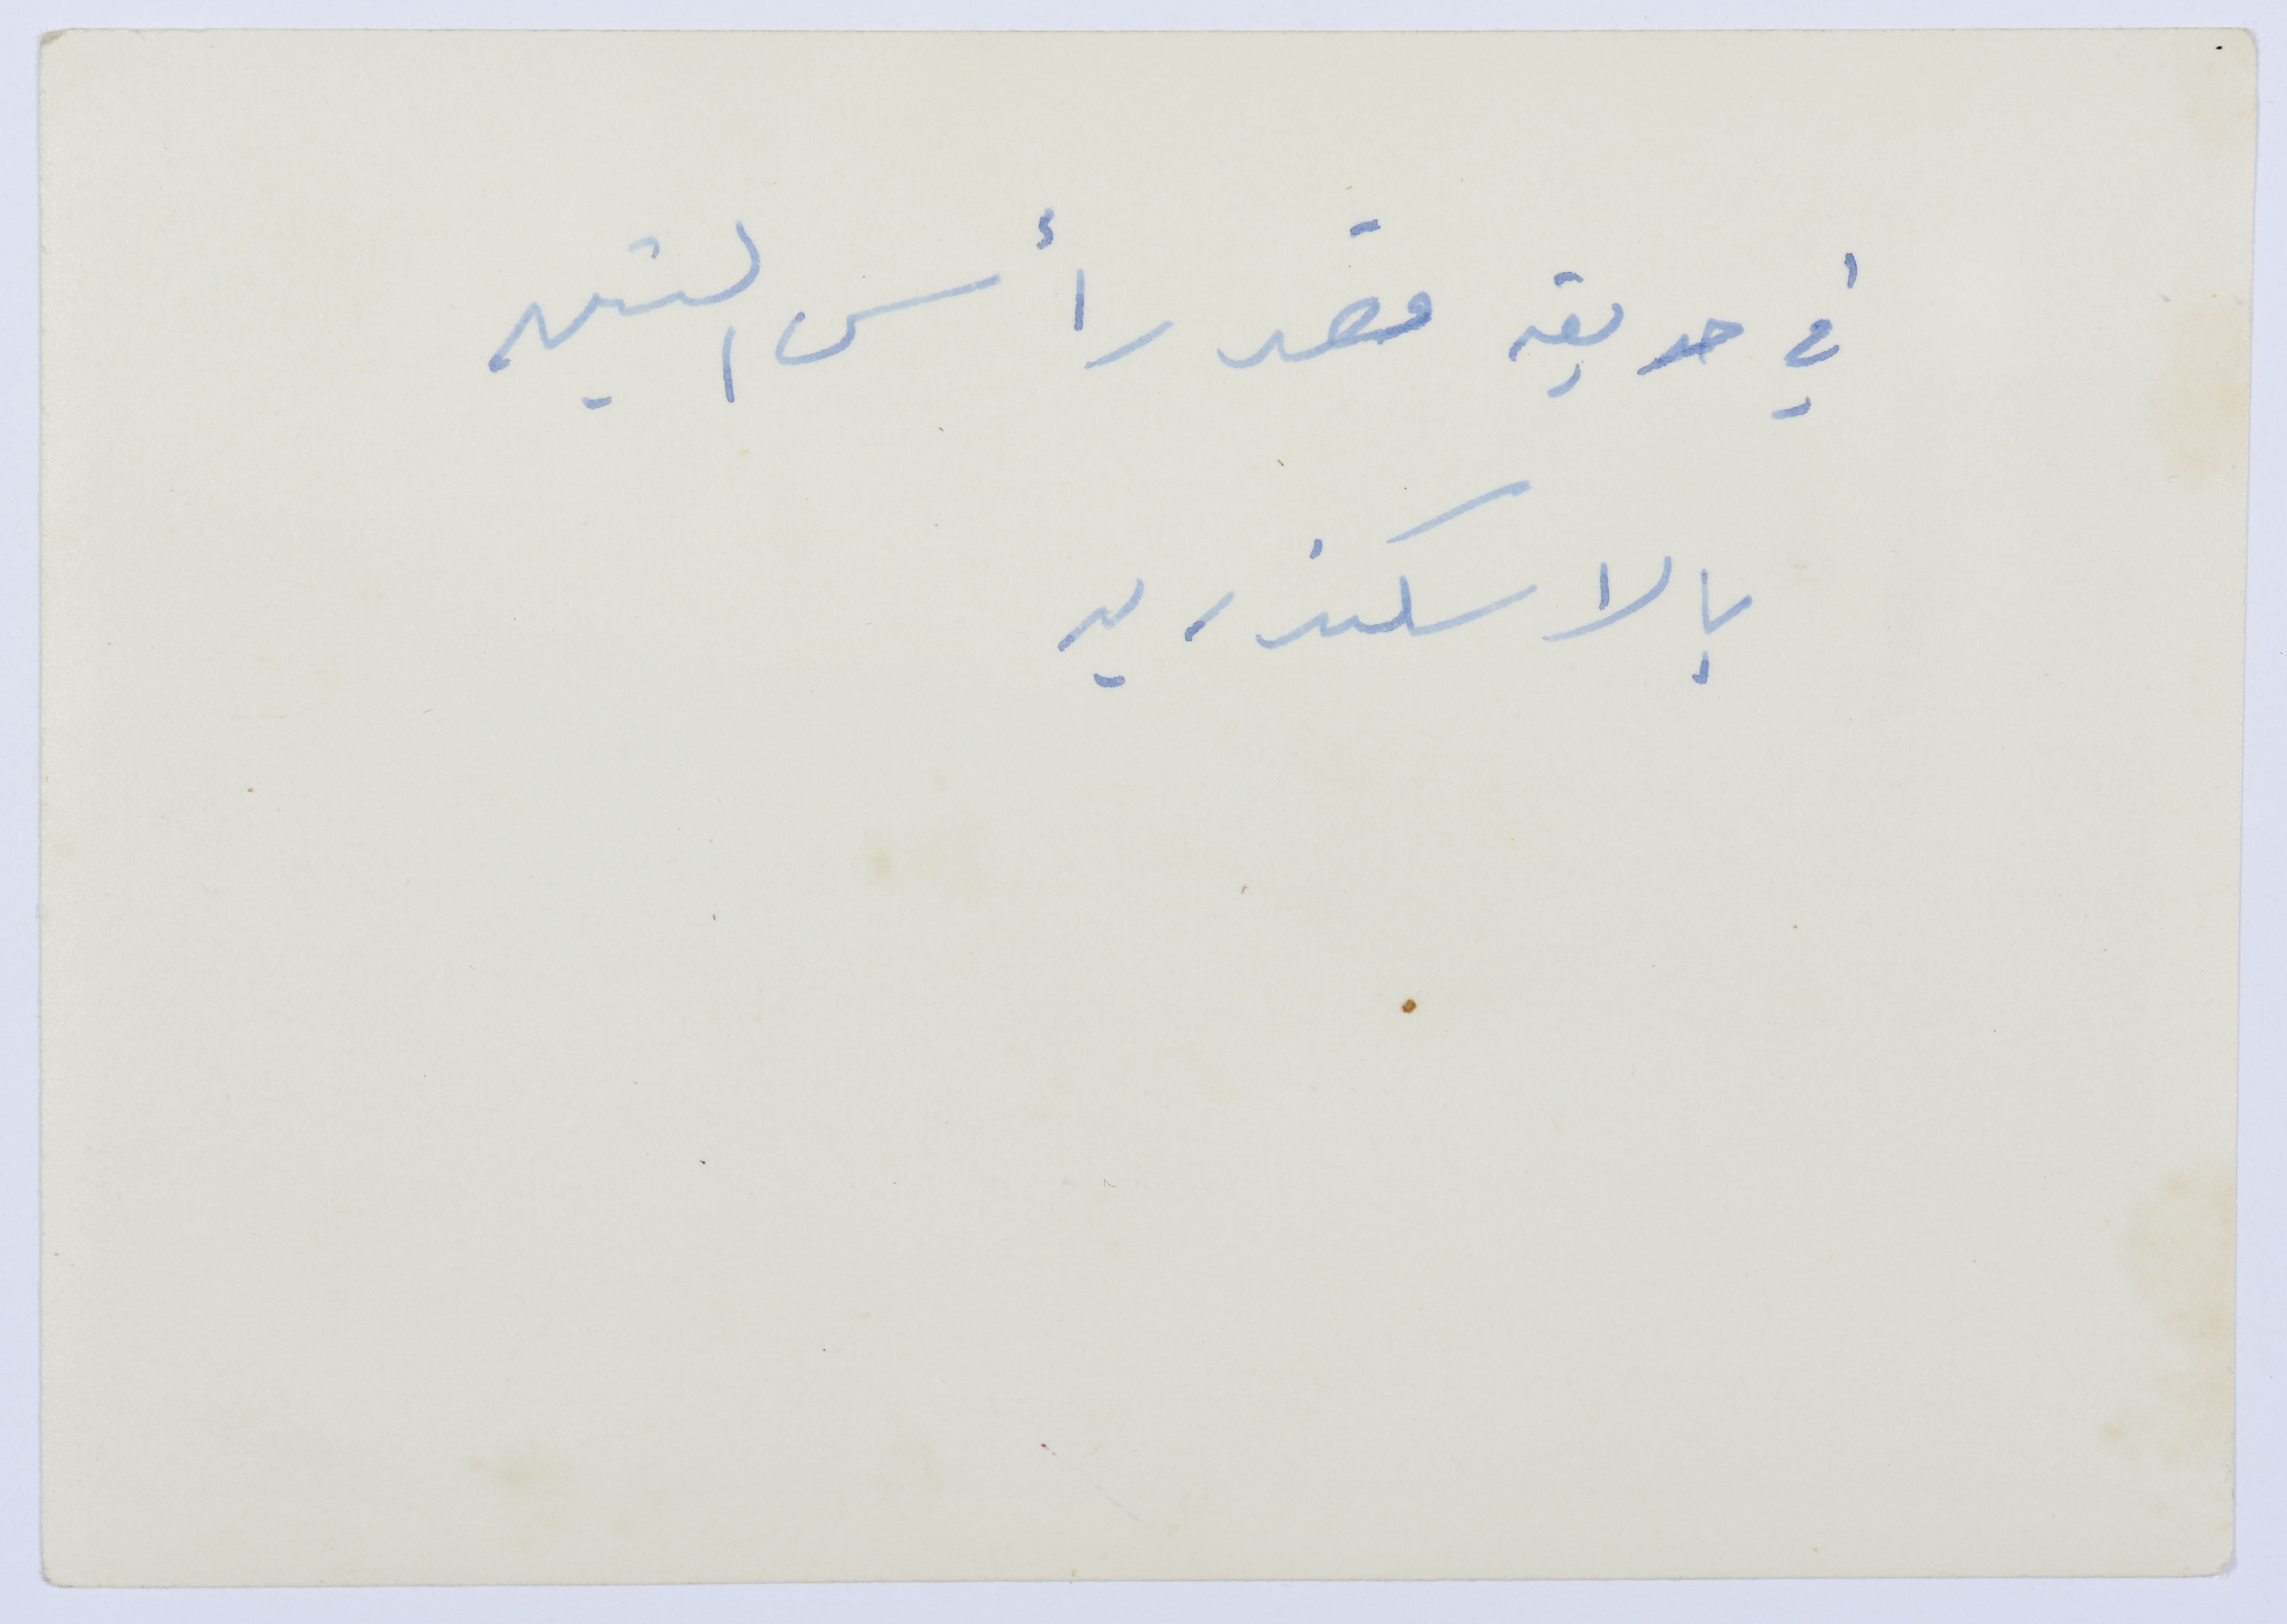 في حديقة قصر رأس التين
بالاسكندرية